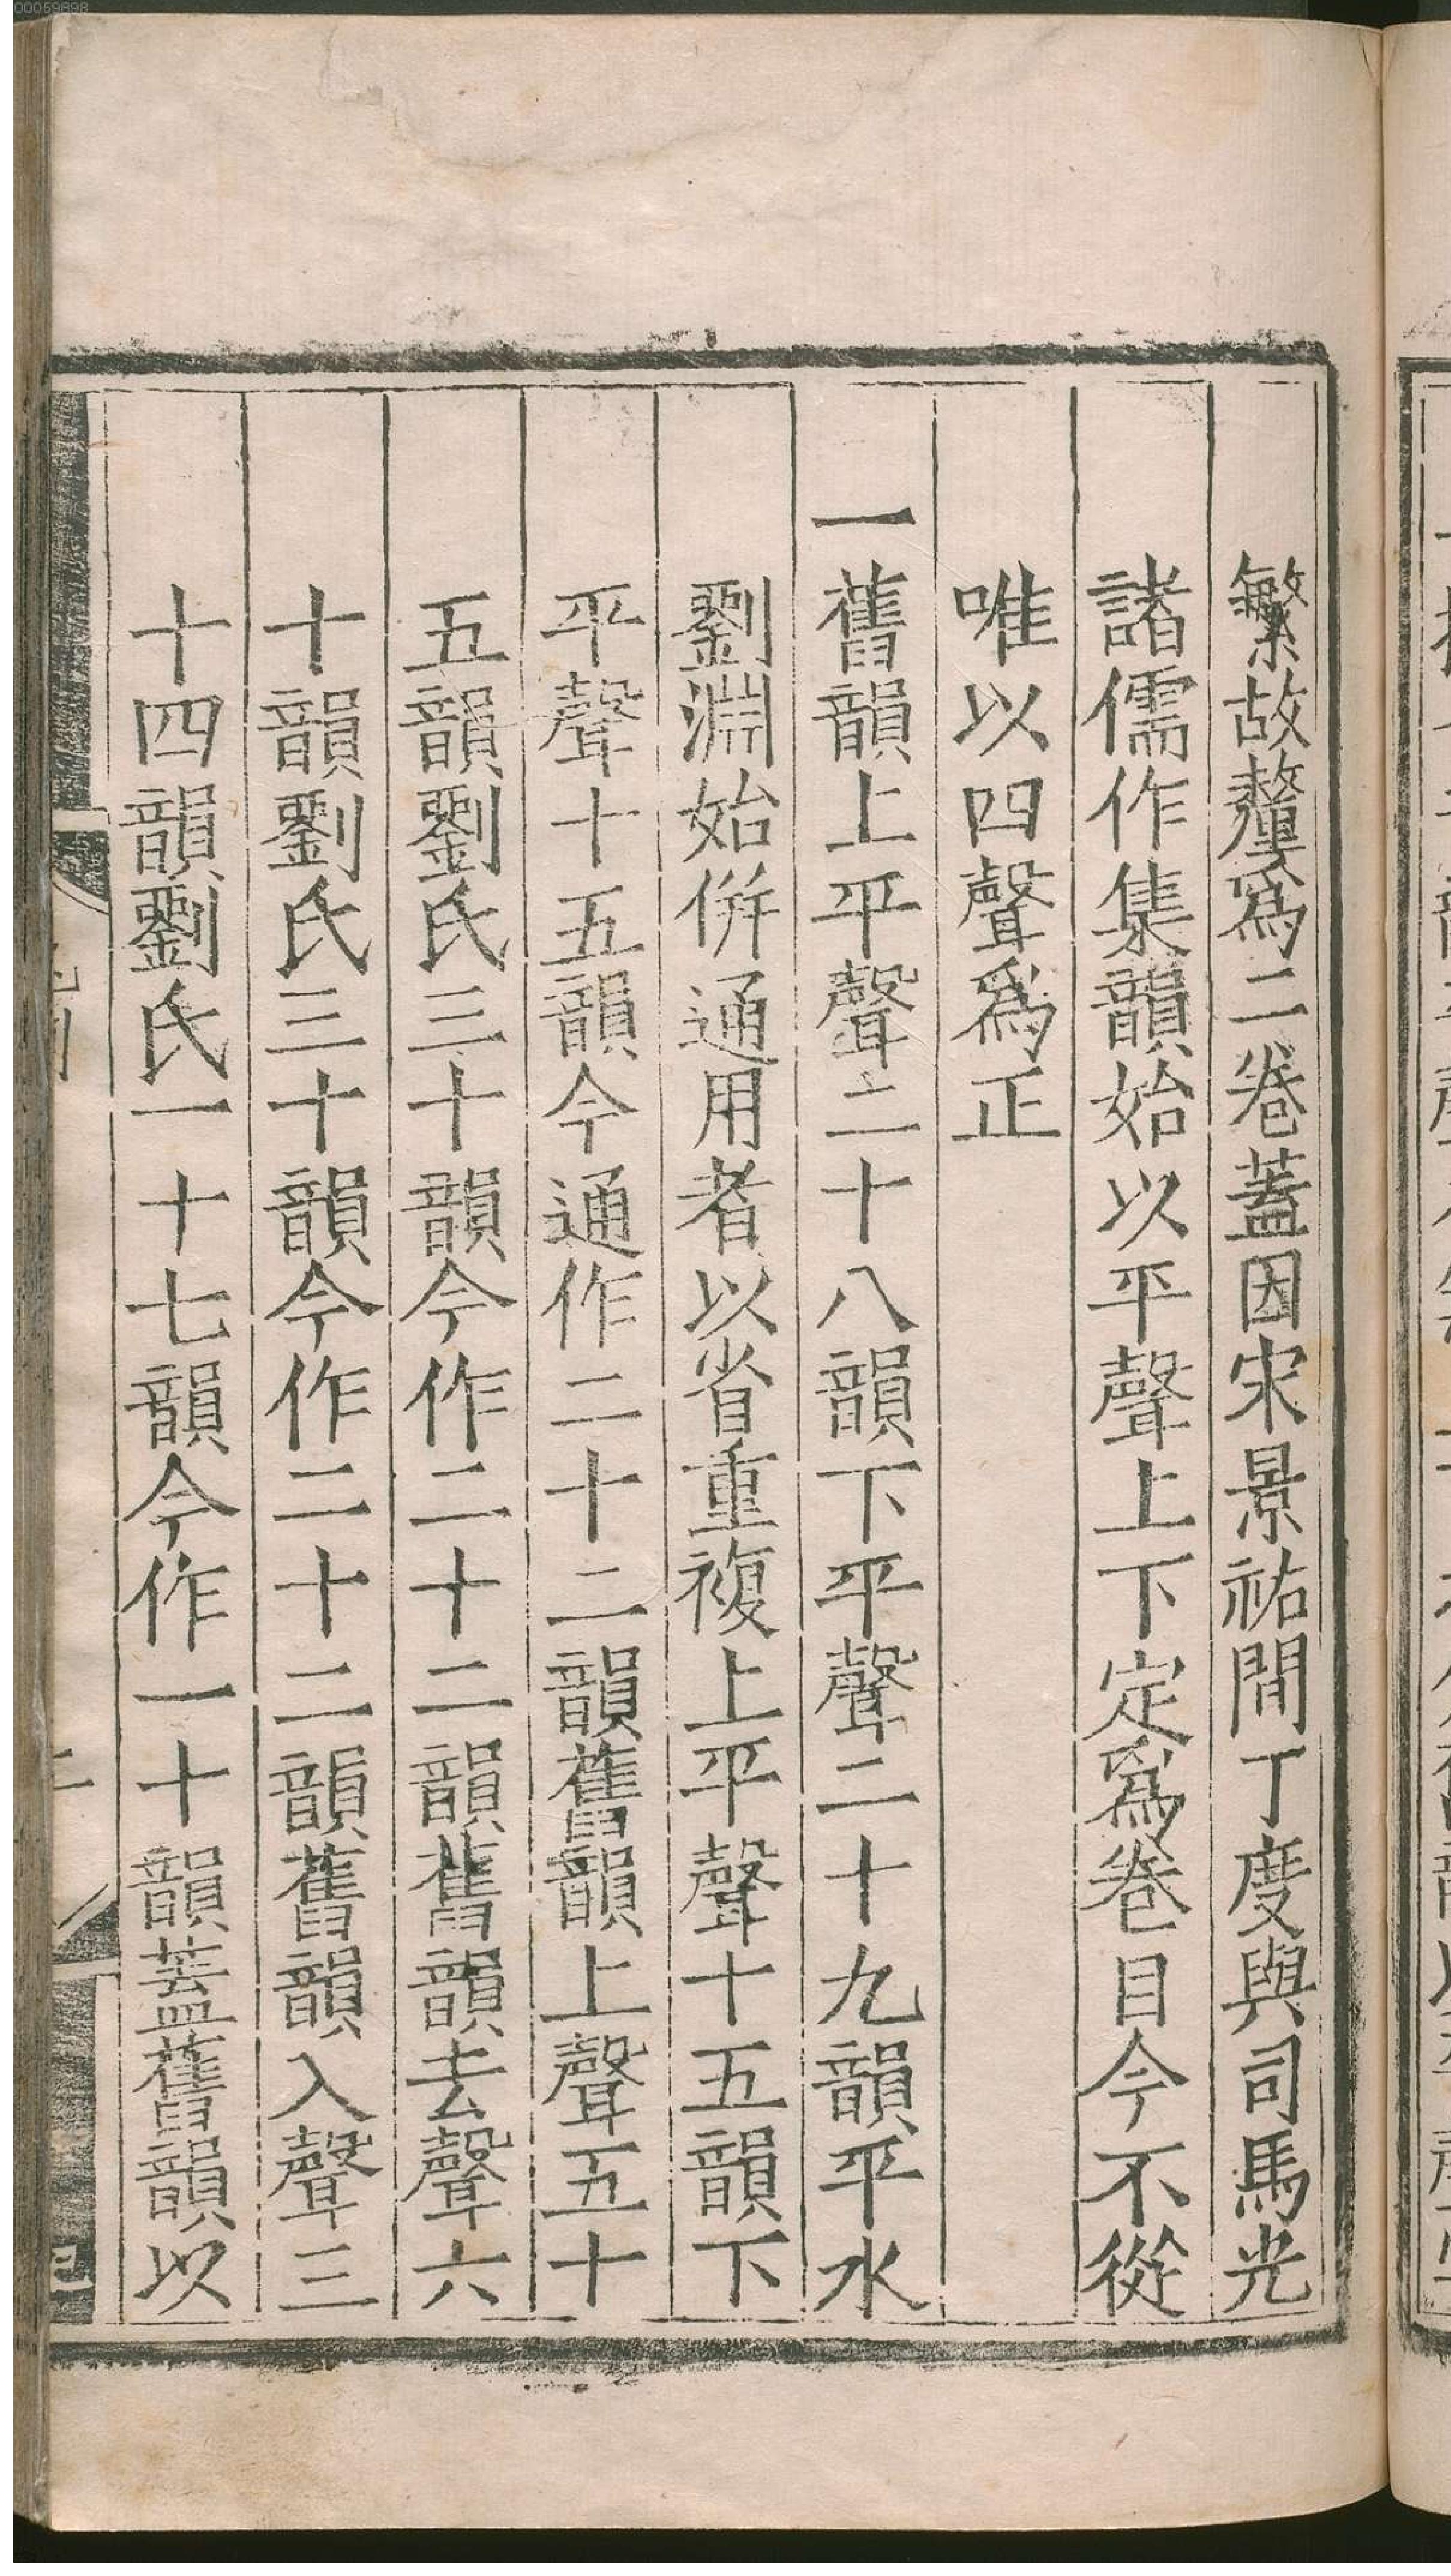 00059898
繁故釐爲二卷蓋因宋景祐間丁度與司馬光
諸儒作集韻始以平聲上下定爲卷目今不從
唯以四聲爲正
一舊韻上平聲二十八韻下平聲二十九韻平水
劉淵始併通用者以省重複上平聲十五韻下
平聲十五韻今通作二十二韻舊韻上聲五十
五韻劉氏三十韻今作二十二韻舊韻去聲六
十韻劉氏三十韻今作二十二韻舊韻入聲三
十四韻劉氏一十七韻今作一十韻蓋舊韻以